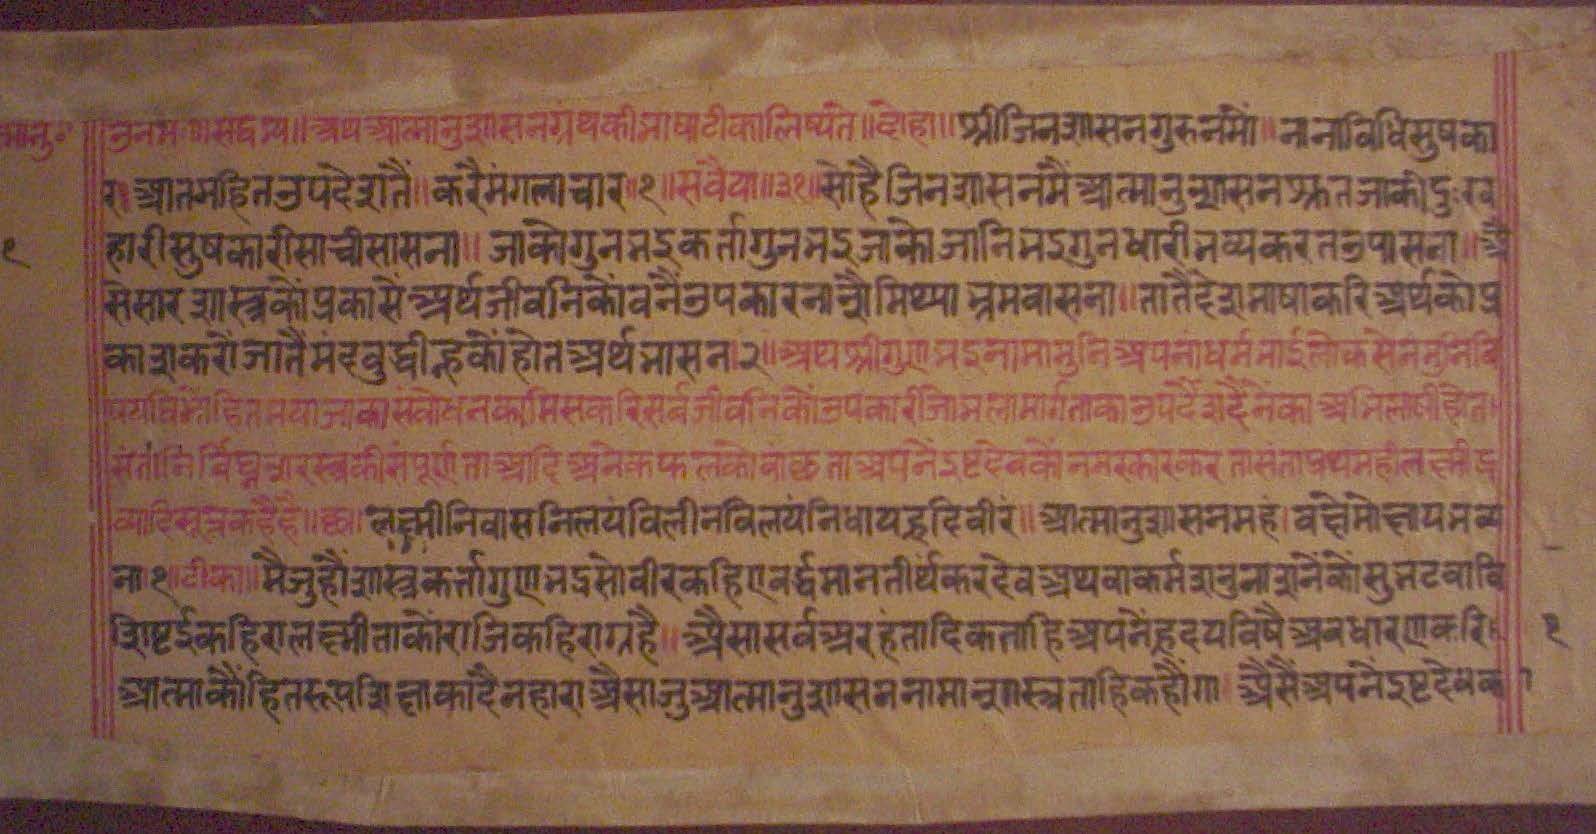 अथ आत्मानुशासनग्रंथकी भाषाटीका लिष्यते॥ दोहा॥ श्रीजिनशासनगुरुनमौं॥ नानाविधिसुषका
र॥ आतमहितउपदेशतैं॥ करैमंगलाचार॥१॥ सवैया॥३१॥ सोहैजिनशासनमैंआत्मानुशासनश्रुतजाकीदुःख
हारीसुषकारीसाचीसासना॥ जाकोगुनभद्रकर्तागुनभद्रजाकोजानिभद्रगुनधारीभव्यकरतउपासना॥ ऐ
सेसारशास्त्रकौंप्रकासैंअर्थजीवनिकौंवनैंउपकारनाशैमिथ्याभ्रमवासना॥ तातैंदेशभाषाकरिअर्थकोप्र
काशकरौंजातैंमंदबुद्धीन्हकौंहोतअर्थभासन॥२॥ अथश्रीगुणभद्रनामामुनिअपनाधर्मभाईलोकसेनमुनिवि
षयविमोहितभयाजाकासंबोधनकामिसकरिसर्बजीवनिकौंउपकारीजोभलामार्गताकाउपदेशदैंनेंकाअभिलाषीहोत
संतानिर्विघ्नशास्त्रकीसंपूर्णताआदिअनेकफलकोवांछताअपनेंइष्टदेवकौंनमस्कारकरतासंताप्रथमहीलक्ष्मी
त्यादिसूत्रकहैहै॥ लक्ष्मीनिवासनिलयंविलीनविलयंनिधायहृदिवीरं॥ आत्मानुशासनमहं। वक्ष्येमोक्षायभव्या
ना१॥ टीका॥ मैंजुहौंशास्त्रकर्त्तागुणभद्रसोवीरकहिएवर्द्धमानतीर्थकरदेवअथवाकर्मशत्रुनाशनेंकौंसुभटवावि
शिष्टईकहिएलक्ष्मीताकौंराजिकहिएग्रहै॥ ऐसासर्वअरहंतादिकताहिअपनेंहृदयविषैअवधारणकरि
आत्माकौंहितरूपशिक्षाकादैनहाराऐसाजुआत्मानुशासननामाशास्त्रताहिकहौंगा॥ ऐसैंअपनेंइष्टदेवक
१